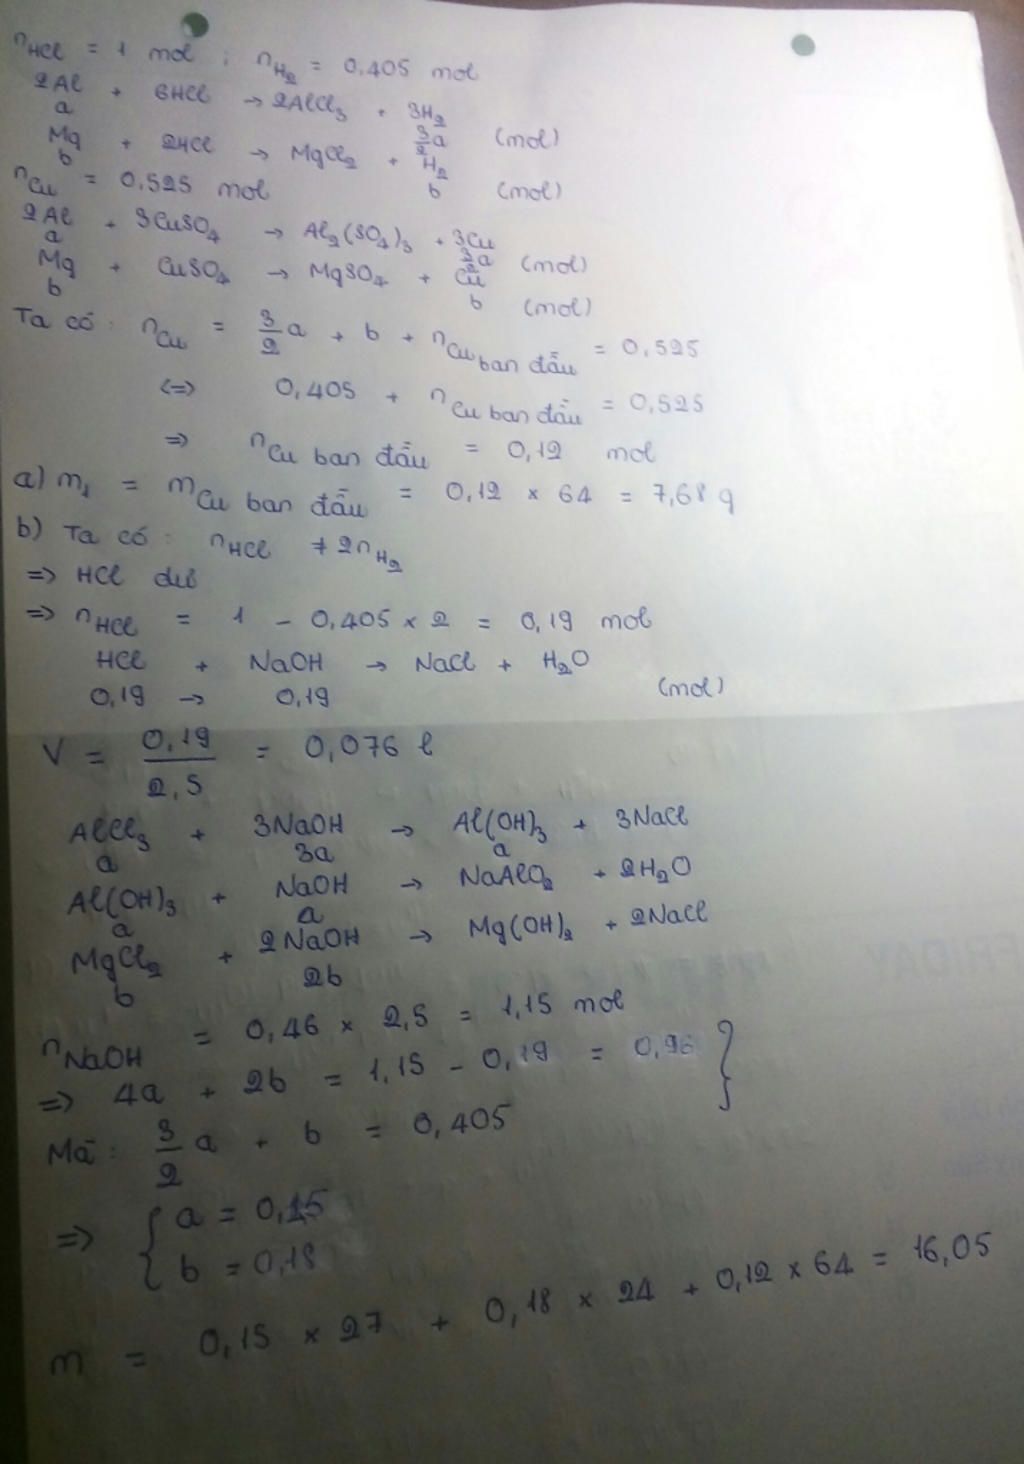 nHCl = 1 mol ; nH2 = 0,405 mol
2Al + 6HCl → 2AlCl3 + 3H2
a 3/2a (mol)
Mg + 2HCl → MgCl2 + H2
b b (mol)
nCu = 0,525 mol
2Al + 3CuSO4 → Al2(SO4)3 + 3Cu
a 3/2a (mol)
Mg + CuSO4 → MgSO4 + Cu
b b (mol)
Ta có : nCu = 3/2 a + b + nCu ban đầu = 0,525
<=> 0,405 + nCu ban đầu = 0,525
=> nCu ban đầu = 0,12 mol
a) m1 = mCu ban đầu = 0,12 × 64 = 7,68 g
b) Ta có : nHCl ≠ 2nH2
=> HCl dư
=> nHCl = 1 - 0,405 × 2 = 0,19 mol
HCl + NaOH → NaCl + H2O
0,19 → 0,19 (mol)
V = 0,19/2,5 = 0,076 l
AlCl3 + 3NaOH → Al(OH)3 + 3NaCl
a 3a a
Al(OH)3 + NaOH → NaAlO2 + 2H2O
a a
MgCl2 + 2NaOH → Mg(OH)2 + 2NaCl
b 2b
nNaOH = 0,46 × 2,5 = 1,15 mol
=> 4a + 2b = 1,15 - 0,19 = 0,96 }
Mà : 3/2 a + b = 0,405
=> { a = 0,15
b = 0,18
m = 0,15 × 27 + 0,18 × 24 + 0,12 × 64 = 16,05
FRIDAY